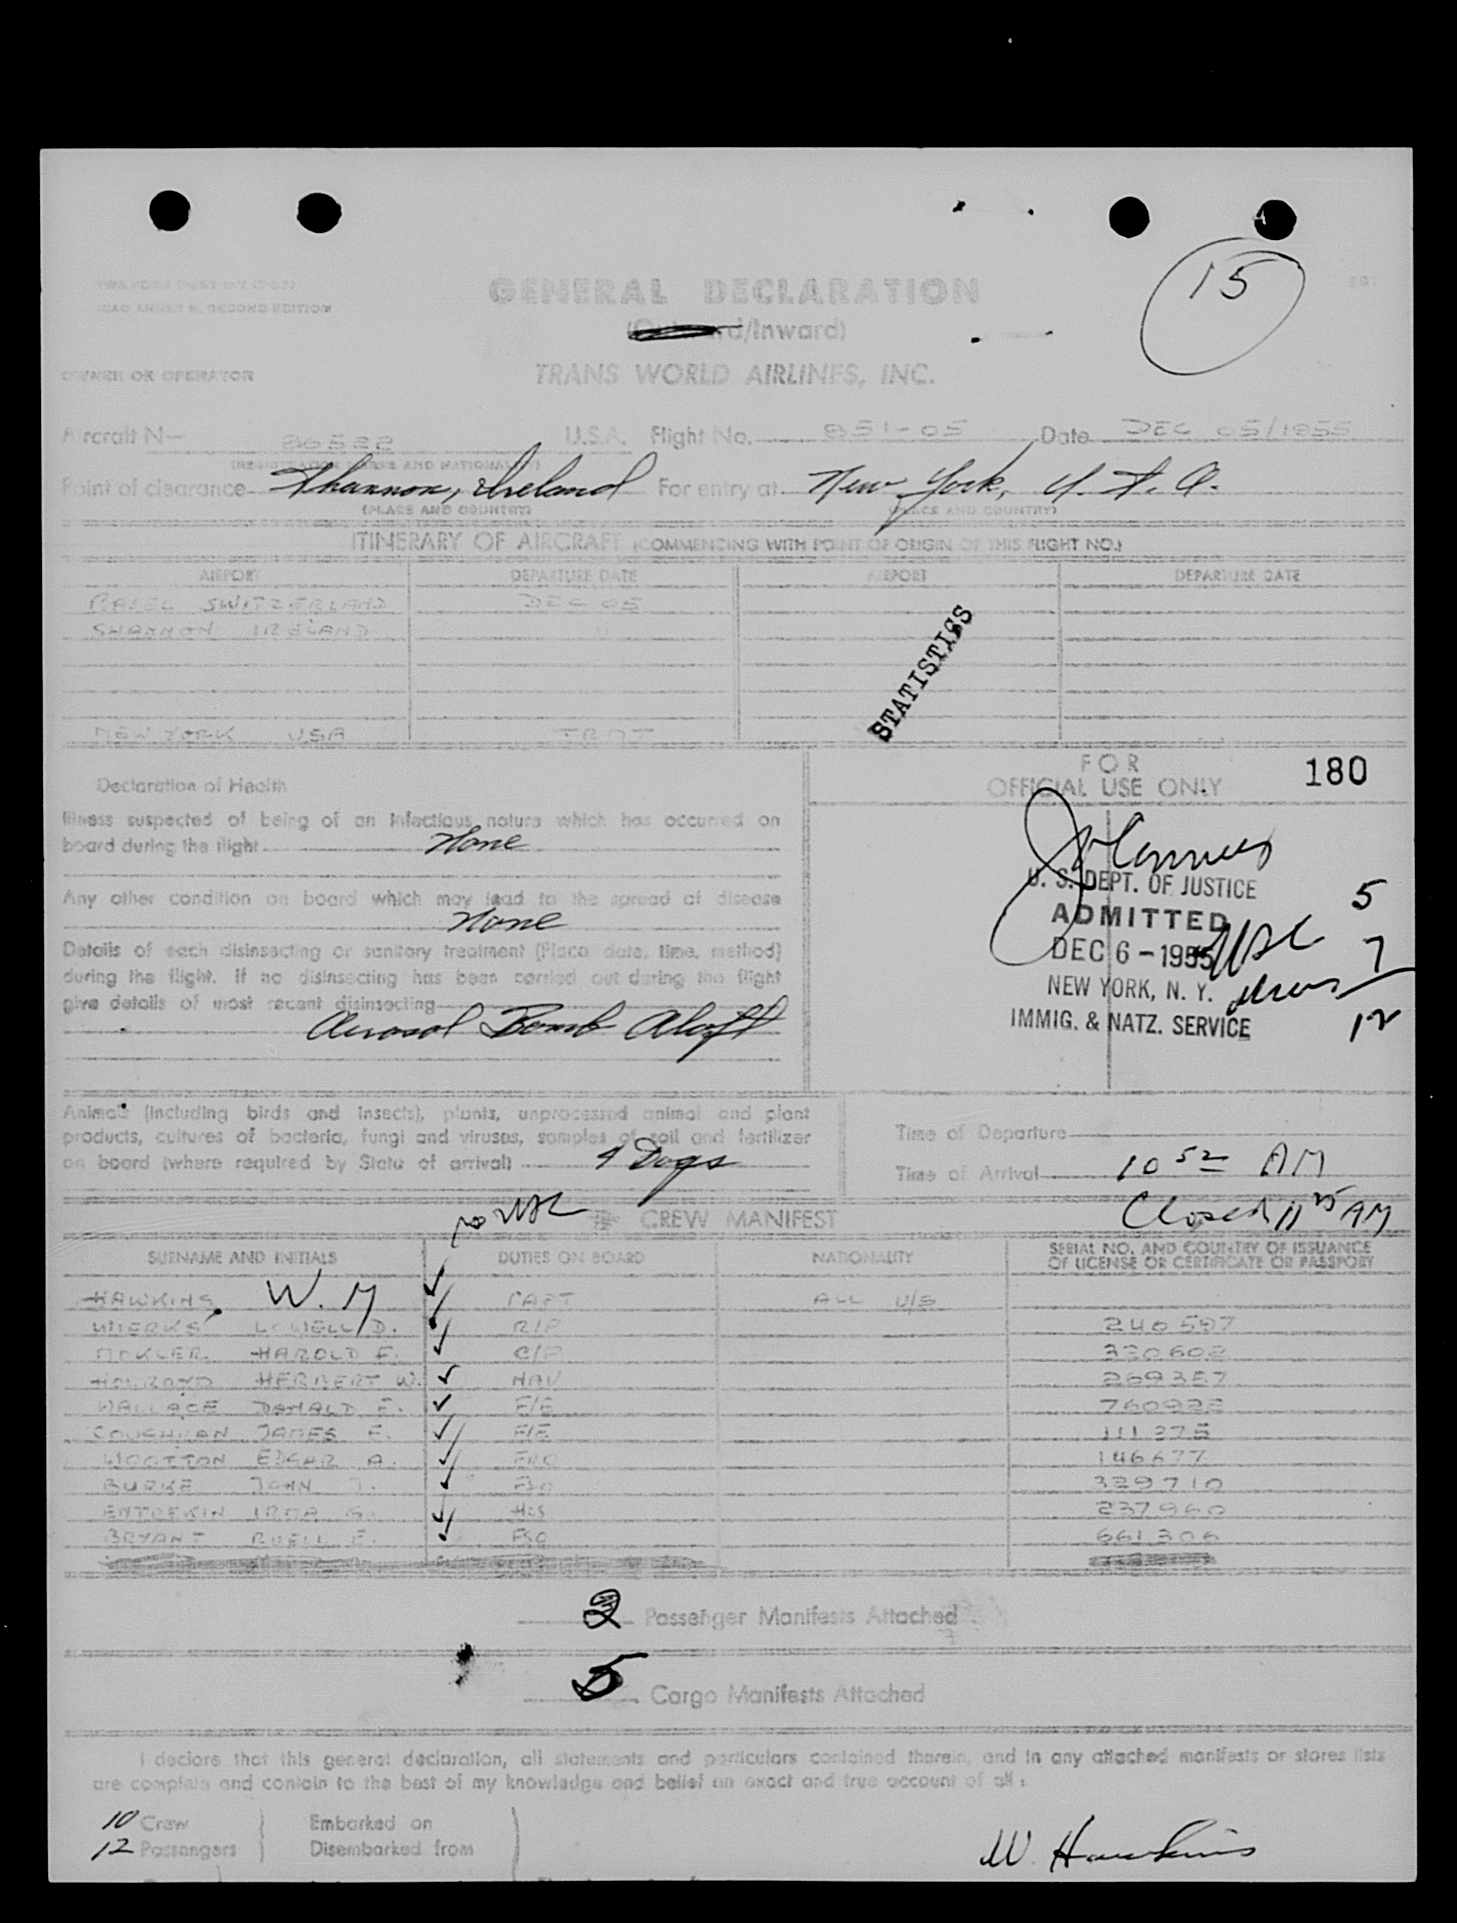 15
ICAO ANNEX 9, SECOND EDITION
GENERAL DECLARATION
(Outward/Inward)
OWNER OR OPERATOR TRANS WORLD AIRLINES, INC.
Aircraft N— 86522 U.S.A. Flight No. 851-05 Date DEC 05/1955
(REGISTRATION MARKS AND NATIONALITY)
Point of clearance Shannon, Ireland For entry at New York, U.S.A.
(PLACE AND COUNTRY) (PLACE AND COUNTRY)
ITINERARY OF AIRCRAFT (COMMENCING WITH POINT OF ORIGIN OF THIS FLIGHT NO.)
AIRPORT DEPARTURE DATE AIRPORT DEPARTURE DATE
BASEL SWITZERLAND DEC 05
SHANNON IRELAND "
STATISTICS
NEW YORK USA TRMT
FOR
OFFICIAL USE ONLY 180
Declaration of Health
Illness suspected of being of an infectious nature which has occurred on
board during the flight None
Any other condition on board which may lead to the spread of disease
None
Details of each disinsecting or sanitary treatment (Place date, time, method)
during the flight. If no disinsecting has been carried out during the flight
give details of most recent disinsecting
Aerosol Bomb Aloft
U. S. DEPT. OF JUSTICE 5
ADMITTED
DEC 6 - 1955 USC 7
NEW YORK, N. Y.
IMMIG. & NATZ. SERVICE 12
Animals (including birds and insects), plants, unprocessed animal and plant
products, cultures of bacteria, fungi and viruses, samples of soil and fertilizer
on board (where required by State of arrival) 4 Dogs
Time of Departure
Time of Arrival 10 52 AM
Closed 11 25 AM
USC CREW MANIFEST
SURNAME AND INITIALS DUTIES ON BOARD NATIONALITY SERIAL NO. AND COUNTRY OF ISSUANCE
OF LICENSE OR CERTIFICATE OR PASSPORT
HAWKINS W. M CAPT ALL U/S
WIERKS LOWELL D. R/P 240597
MOKLER HAROLD F. C/P 330602
HOLROYD HERBERT W. NAV 269357
WALLACE DONALD F. F/E 760922
COUGHLAN JAMES F. F/E 111275
WOOTTON EDGAR A. FRO 146677
BURKE JOHN J. FSO 329710
ENTREKIN IRMA G. HOS 237960
BRYANT RUELL F. FSO 661306
2 Passenger Manifests Attached
5 Cargo Manifests Attached
I declare that this general declaration, all statements and particulars contained therein, and in any attached manifests or stores lists
are complete and contain to the best of my knowledge and belief an exact and true account of all :
10 Crew Embarked on
12 Passengers Disembarked from
W. Hawkins